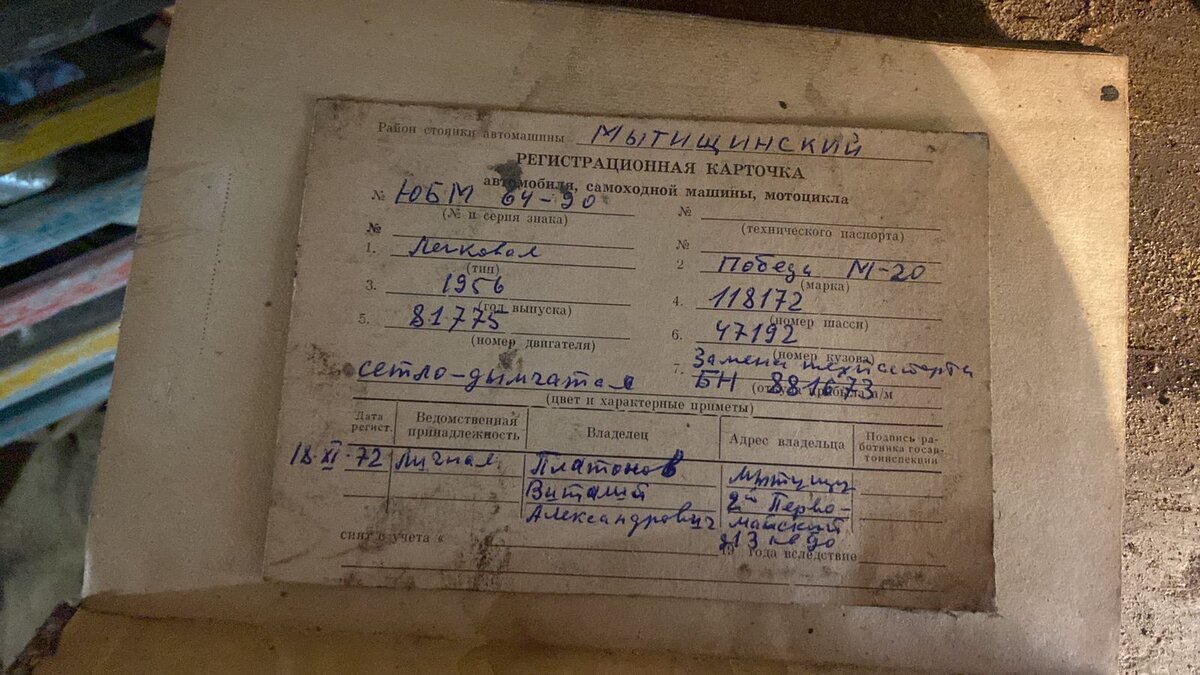 Район стоянки автомашины МЫТИЩИНСКИЙ
РЕГИСТРАЦИОННАЯ КАРТОЧКА
автомобиля, самоходной машины, мотоцикла
№ ЮБМ 64-90 №
(№ и серия знака) (технического паспорта)
№ №
1. Легковая 2 Победа М-20
(тип) (марка)
3. 1956 4. 118172
(год выпуска) (номер шасси)
5. 81775 6. 47192
(номер двигателя) (номер кузова)
7. Замена техпаспорта
сетло-дымчатая БН 881673
а/м
(цвет и характерные приметы)
Дата регист. Ведомственная принадлежность Владелец Адрес владельца Подпись работника госавтоинспекции
18·XI·72 Личная Платонов Мытищи
Виталий 2й Перво-
Александрович майский
д13
снят с учета « 19 года вследствие